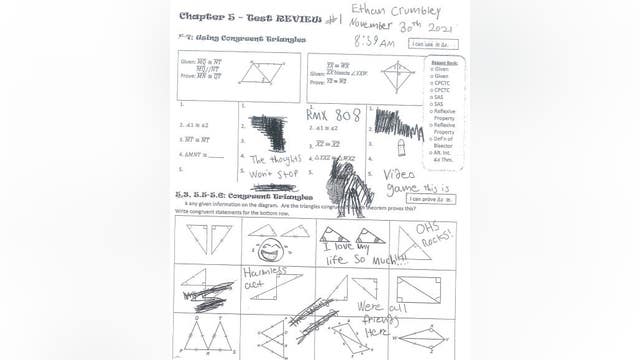 Chapter 5 - Test REVIEW #1
Ethan Crumbley
November 30th 2021
8:39 AM
Using Congruent Triangles
I can use ≅ Δs.
Given: MQ ≅ NT
MQ // NT
Prove: MN ≅ QT
Given: YX ≅ WX
ZX bisects ∠YXW
Prove: YZ ≅ WZ
Reason Bank:
o Given
o Given
o CPCTC
o CPCTC
o SAS
o SAS
o Reflexive
Property
o Reflexive
Property
o Def'n of
Bisector
o Alt. Int.
∠s Thm.
1.
2. ∠1 ≅ ∠2
3. NT ≅ NT
4. ΔMNT ≅
5.
1.
4. The thoughts
5. Won't stop
1. RMX 808
2. ∠1 ≅ ∠2
3. XZ ≅ XZ
4.
5.
1.
2.
3.
4.
5. Video
game this is
5.3, 5.5-5.6: Congruent Triangles
I can prove Δs ≅.
any given information on the diagram. Are the triangles congruent theorem proves this?
Write congruent statements for the bottom row.
I love my
life so much!!!!
OHS
Rocks!
Harmless
act
We're all
friends
Here